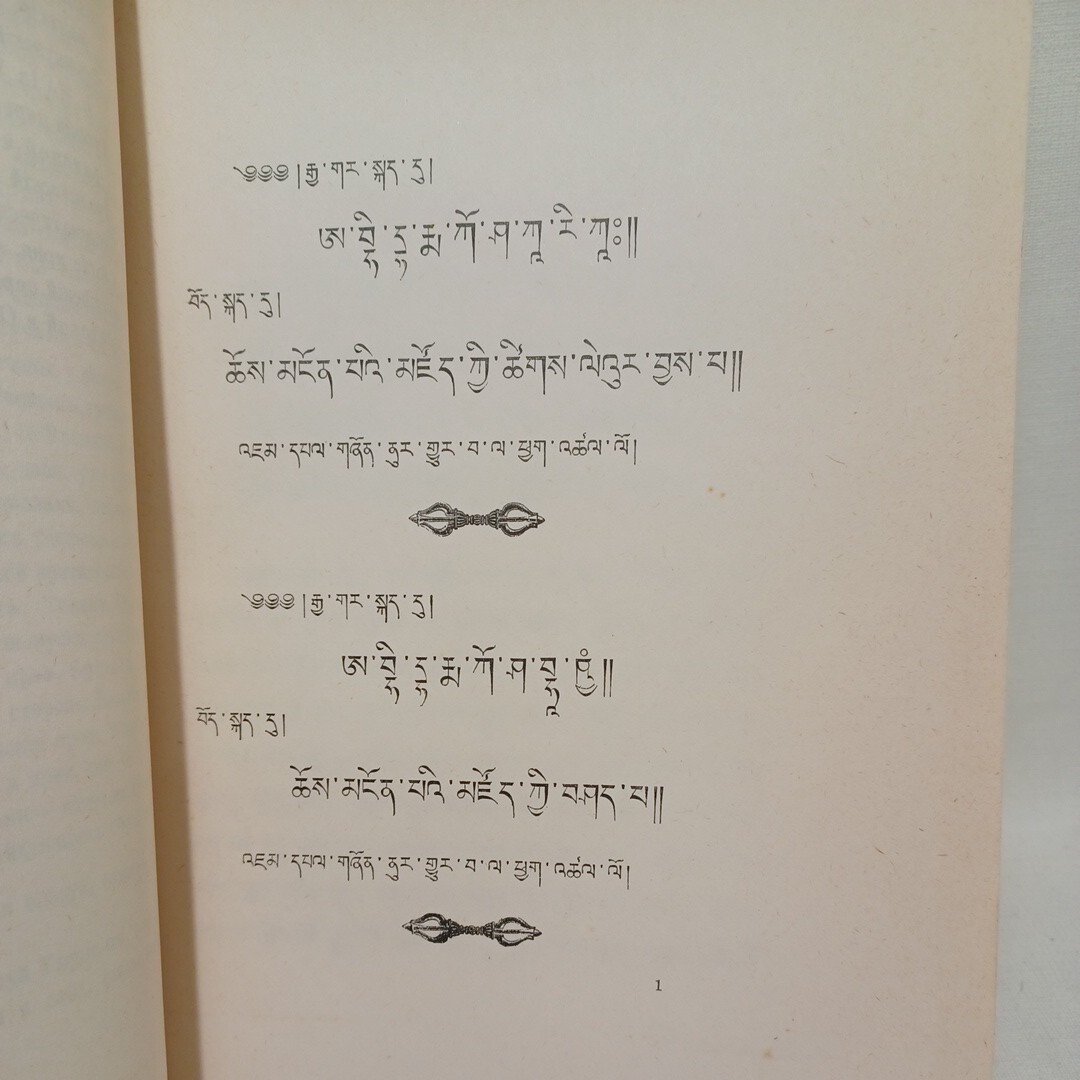 ༄༅༅༅།རྒྱ་གར་སྐད་དུ།
ཨ་བྷི་དྷ་རྨ་ཀོ་ཤ་ཀཱ་རི་ཀཱཿ༎
བོད་སྐད་དུ།
ཆོས་མངོན་པའི་མཛོད་ཀྱི་ཚིགས་ལེའུར་བྱས་པ༎
འཇམ་དཔལ་གཞོན་ནུར་གྱུར་བ་ལ་ཕྱག་འཚལ་ལོ།
༄༅༅༅།རྒྱ་གར་སྐད་དུ།
ཨ་བྷི་དྷ་རྨ་ཀོ་ཤ་བྷཱ་ཥྱཾ༎
བོད་སྐད་དུ།
ཆོས་མངོན་པའི་མཛོད་ཀྱི་བཤད་པ༎
འཇམ་དཔལ་གཞོན་ནུར་གྱུར་བ་ལ་ཕྱག་འཚལ་ལོ།
1